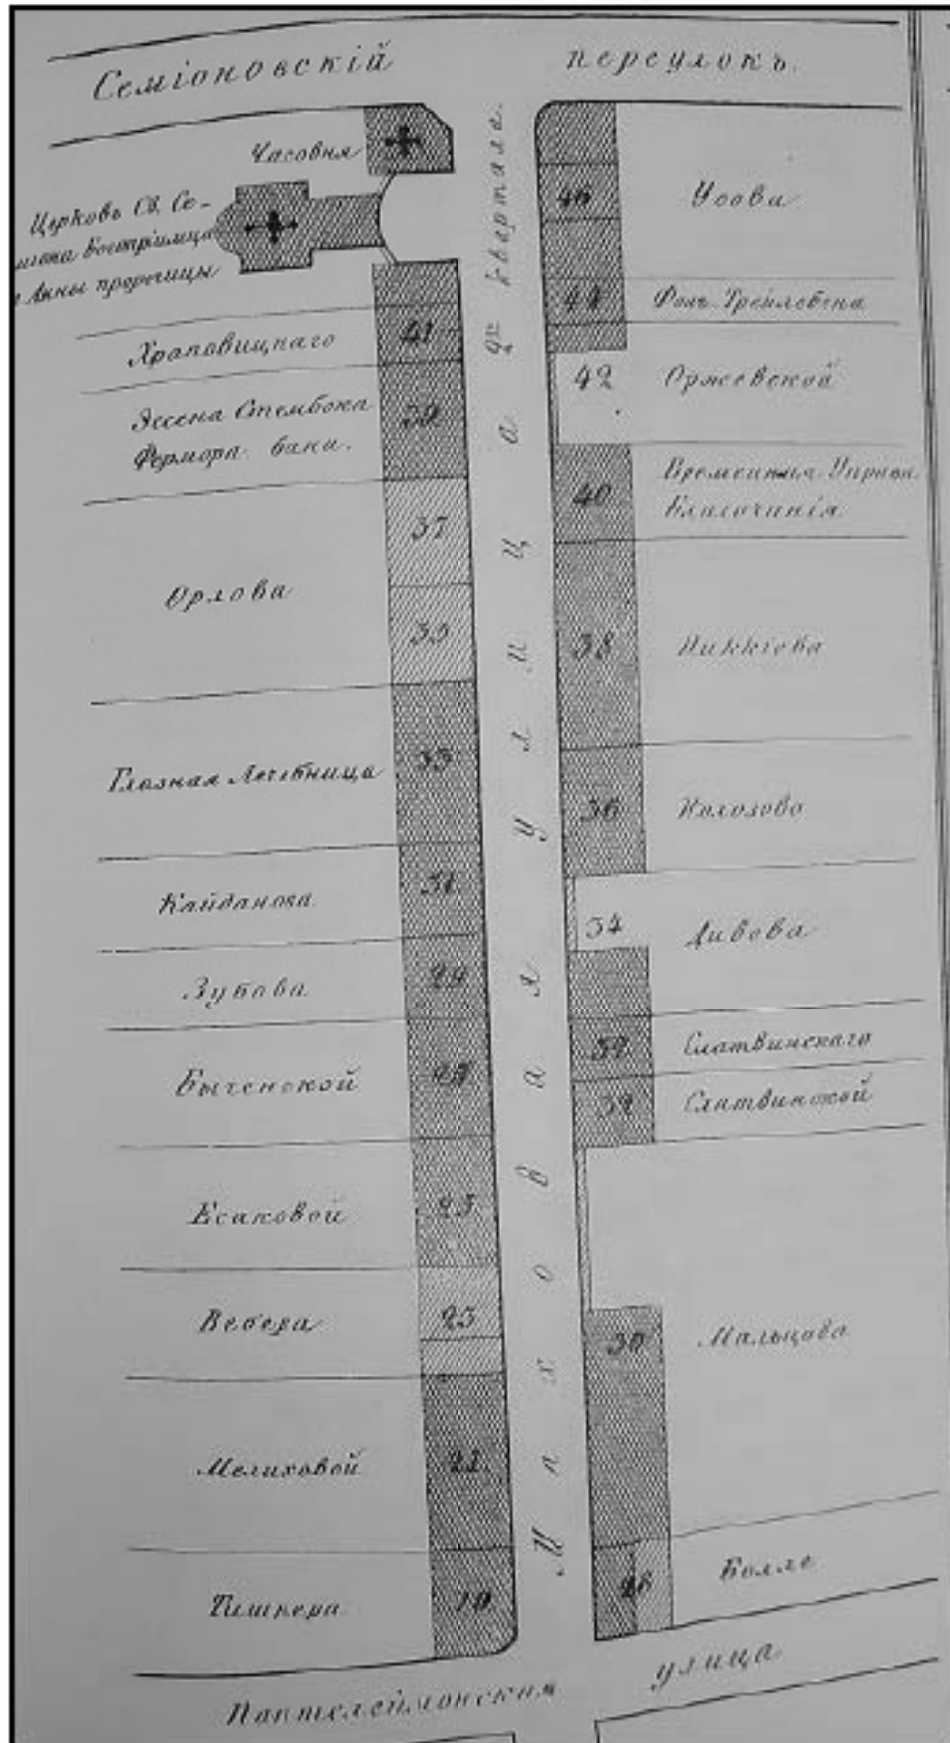 Семіоновскій переулокъ.
Часовня
Церковь Св. Се-
міона Богопріимца
и Анны пророчицы
Храповицкаго
41
Эссена Стембока
Фермора. баки.
39
Орлова
37
35
Глазная Лечебница
33
Кайданова
31
Зубова
29
Быченской
Есаковой
Вебера
23
Мелиховой
21.
Тишнера
19
Моховая улица 2й квартала.
46
Усова
44
Фонъ-Трейлебена
42
Оржевской
40
Временная Управа
Благочинія
38
36
34
Дивова
32
Слатвинскаго
32
Слатвинской
30
Мальцова
28
Болле
Пантелеймонская улица